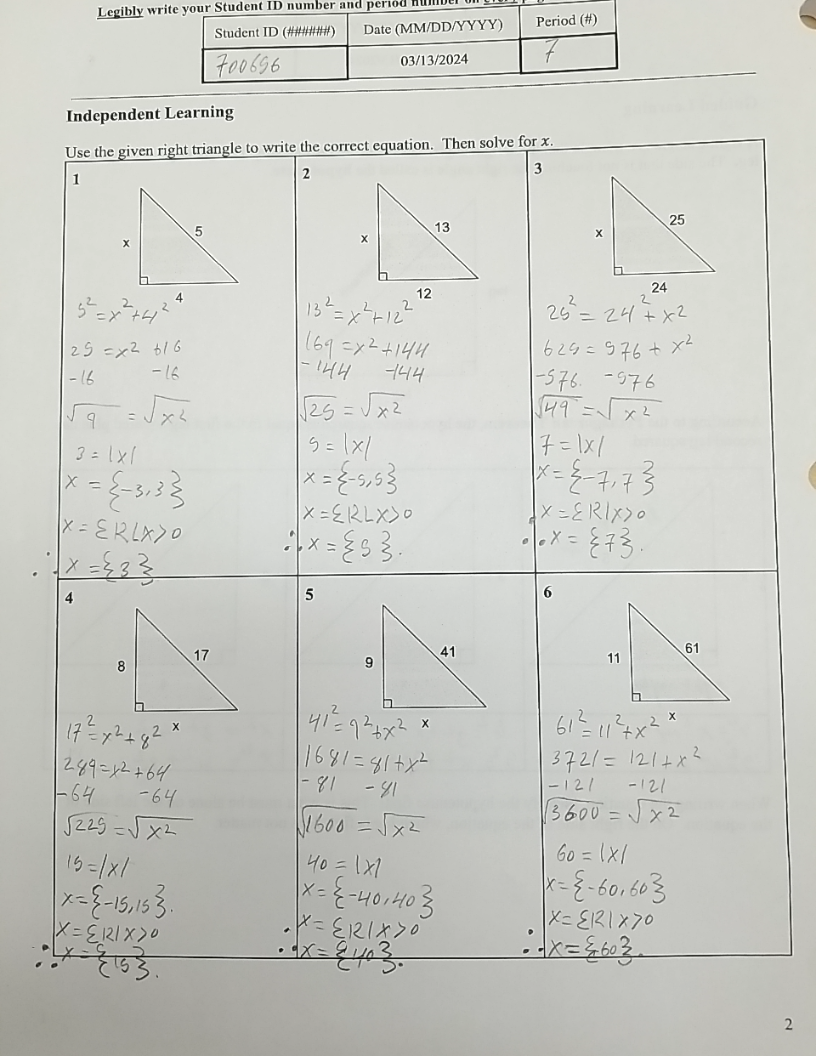 Legibly write your Student ID number and period number on every
Student ID (######) Date (MM/DD/YYYY) Period (#)
700656 03/13/2024 7
Independent Learning
Use the given right triangle to write the correct equation. Then solve for x.
1
x
5
4
5²=x²+4²
25 =x² +16
-16 -16
√9 = √x²
3 = |x|
x = {-3,3}
x = {R|x>0
∴ x = {3}
2
x
13
12
13²=x²+12²
169 =x²+144
-144 -144
√25 = √x²
5 = |x|
x = {-5,5}
x = {R|x>0
∴ x = {5}.
3
x
25
24
25² = 24²+x²
625 = 576 + x²
-576. -576
√49 = √x²
7 = |x|
x = {-7,7}
x = {R|x>0
∴ x = {7}.
4
8
17
x
17²=x²+8²
289=x²+64
-64 -64
√225 = √x²
15=|x|
x={-15,15}.
x={R|x>0
∴ x = {15}.
5
9
41
x
41²=9²+x²
1681=81+x²
-81 -81
√1600 = √x²
40 = |x|
x={-40,40}
x={R|x>0
∴ x={40}.
6
11
61
x
61²=11²+x²
3721= 121+x²
-121 -121
√3600 = √x²
60 = |x|
x={-60,60}
x={R|x>0
∴ x={60}.
2